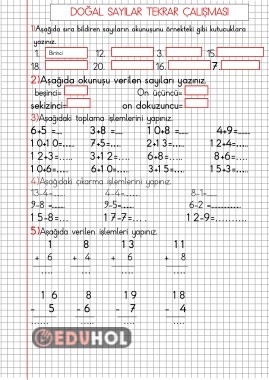 DOĞAL SAYILAR TEKRAR ÇALIŞMASI
1)Aşağıda sıra bildiren sayıların okunuşunu örnekteki gibi kutucuklara
yazınız.
1. Birinci 12. 3. 15.
18. 20. 16. 7.
2)Aşağıda okunuşu verilen sayıları yazınız.
beşinci= On üçüncü=
sekizinci= on dokuzuncu=
3)Aşağıdaki toplama işlemlerini yapınız.
6+5 =.... 3+8 =.... 10+8 =.... 4+9=.....
10+10=.... 7+5=.... 2+13=..... 12+4=.....
12+3=..... 3+12=.... 6+8=..... 8+6=....
10+6=.... 6+10=.... 3+15=.... 15+3=.....
4)Aşağıdaki çıkarma işlemlerini yapınız.
13-4=..... 4-4=..... 8-1=.....
9-8 =..... 9-5=..... 6-2 =.....
15-8=... 17-7=.... 12-9=.....
5)Aşağıda verilen işlemleri yapınız.
1 8 13 11
+ 6 + 4 + 6 + 8
..... ..... ..... .....
16 8 19 18
- 5 - 6 - 7 - 4
..... ..... ..... .....
EDUHOL